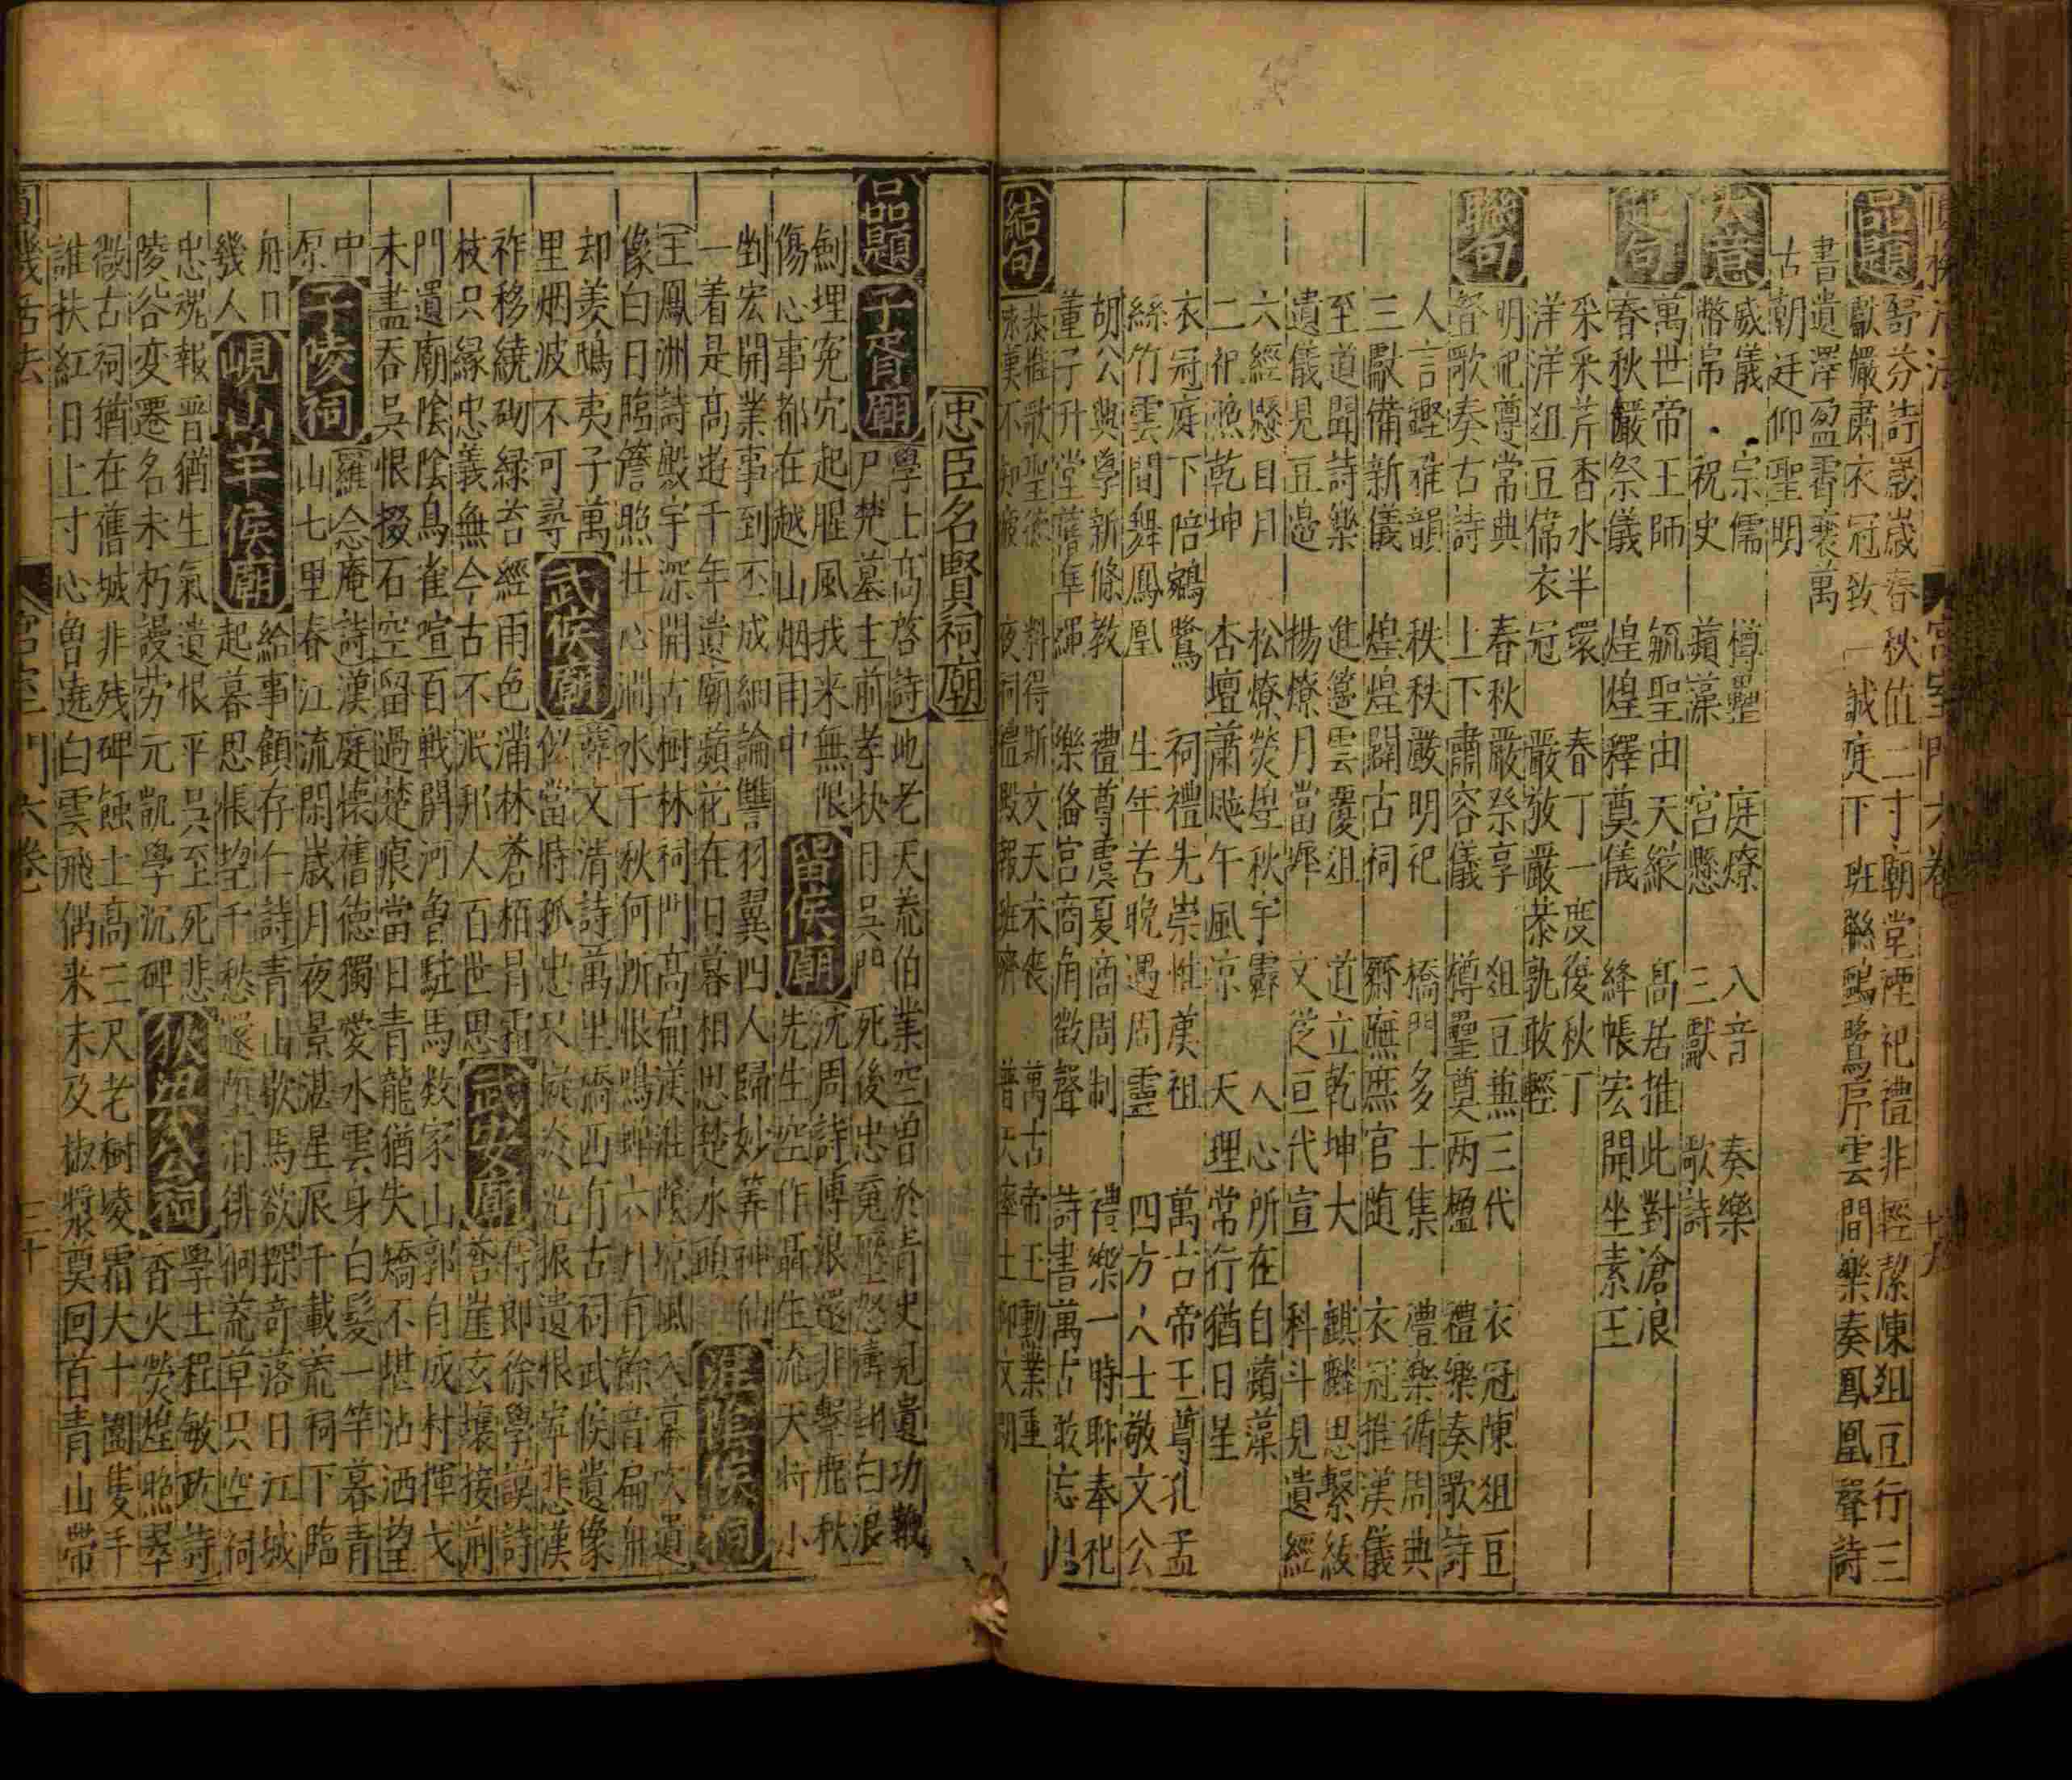 品題
寄芬詩歲歲春秋值二寸廟堂禋祀禮非輕潔陳俎豆行三
獻嚴肅衣冠致一誠庭下班聯鵷鷺序雲間樂奏鳳凰聲詩
書遺澤盈霑襄萬
古朝廷仰聖明
大意
威儀 宗儒 樽罍 庭燎 八音 奏樂
幣帛 祝史 蘋藻 宮懸 三獻 歌詩
起句
萬世帝王師 毓聖由天縱 高居推此對滄浪
春秋嚴祭儀 煌煌釋奠儀 絳帳宏開坐素王
采采芹香水半環 春丁一度復秋丁
洋洋俎豆儒衣冠 嚴敬嚴恭孰敢輕
聯句
明祀尊常典 春秋嚴祭享 俎豆兼三代 衣冠陳俎豆
登歌奏古詩 上下肅容儀 樽罍奠两楹 禮樂奏歌詩
人言鏗雅韻 秩秩嚴明祀 橋門多士集 禮樂循周典
三獻備新儀 煌煌闢古祠 齋廡庶官随 衣冠推漢儀
至道聞詩樂 進籩雲覆俎 道立乾坤大 麒麟思繫紱
遺儀見豆邉 楊燎月當墀 文從亘代宣 科斗見遺經
六經懸日月 松燎熒煌秋宇霽 人心所在自蘋藻
二祀煦乾坤 杏壇蕭颯午風凉 天理常行猶日星
衣冠庭下陪鵷鷺 祠禮先崇性漢祖 萬古帝王尊孔孟
絲竹雲間舞鳳凰 生年苦晚遇周靈 四方人士敬文公
胡公典學新條教 禮尊虞夏商周制 禮樂一時聊奉祀
董子升堂舊隼繹 樂俻宮商角徵聲 詩書萬古敢忘
結句
恭惟歌聖德 料得斯文天未喪 萬古帝王勳業重
不知疲 夜祠禮殿報班齊 普天率土仰文明
忠臣名賢祠廟
品題
子胥廟
學上高啓詩地老天荒伯業空曽於青史見遺功鞭
尸楚墓主前孝抉目呉門死後忠寃壓怒濤翻白浪
劍埋寃穴起腥風我来無限
傷心事都在越山烟雨中
留侯廟
沈周詩博浪還非擊鹿秋
先生空作聶生流天將小
剉宏開業事到丕成細論讐羽翼四人歸妙筭神仙
一着是高逰千年遺廟蘋花在日暮相思楚水頭
淮陰侯祠
王鳳洲詩殿宇深開古樹林祠門高扁漢淮陰凉風入幕吹遺
像白日臨簷照壮心澗水于秋何所恨鳴蟬六月有餘音扁舟
却羡鴟夷子萬
里烟波不可尋
武侯廟
薛文清詩萬里橋西有古祠武侯遺像
似當時孤忠只旋炎光振遺恨寧悲漢
祚移繞砌緑苔經雨色滿林蒼栢冐霜
枝只縁忠義無今古不泯邦人百世思
武安廟
侍郎徐學謨詩
蒼崖玄壤接前
門遺廟陰陰鳥雀喧百戦開河魯駐馬数家山郭自成村揮戈
未盡吞吳恨掇石空留過楚痕當日青龍猶失矯不堪沾洒望
中
原
子陵祠
羅念庵詩漢庭懐舊德獨愛水雲身白髪一竿暮青
山七里春江流閑歲月夜景湛星辰千載荒祠下臨
舟日
幾人
峴山羊侯廟
給事顧存仁詩青山歇馬欲探奇落日江城
起暮思悵望千愁還墮泪徘徊荒草只空祠
忠魂報晋猶生氣遺恨平呉至死悲
陵谷変遷名未朽謾労元凱學沉碑
狄梁公祠
學士程敏政詩
香火熒煌照翠
微古祠猶在舊城非残碑蝕土高三尺老樹凌霜大十圍隻手
誰扶紅日上寸心曽遶白雲飛偶来未及椒漿奠回首青山帶